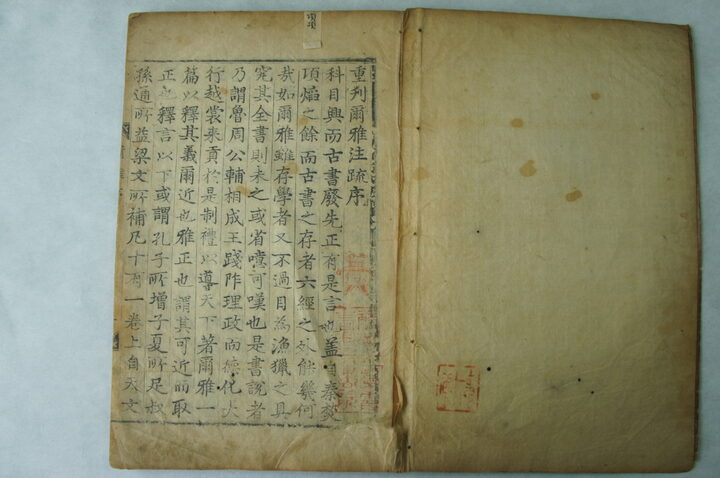 重刋爾雅注疏序
科目興而古書廢先正有是言也盖自秦焚
項燄之餘而古書之存者六經之外能幾何
哉如爾雅雖存學者又不過目為漁獵之具
究其全書則未之或省噫可嘆也是書說者
乃謂魯周公輔相成王踐阼理政向德化大
行越裳來貢於是制禮以導天下著爾雅一
篇以釋其義爾近也雅正也謂其可近而取
正也釋言以下或謂孔子所增子夏所足叔
孫通所益梁文所補凡十有一卷上自天文